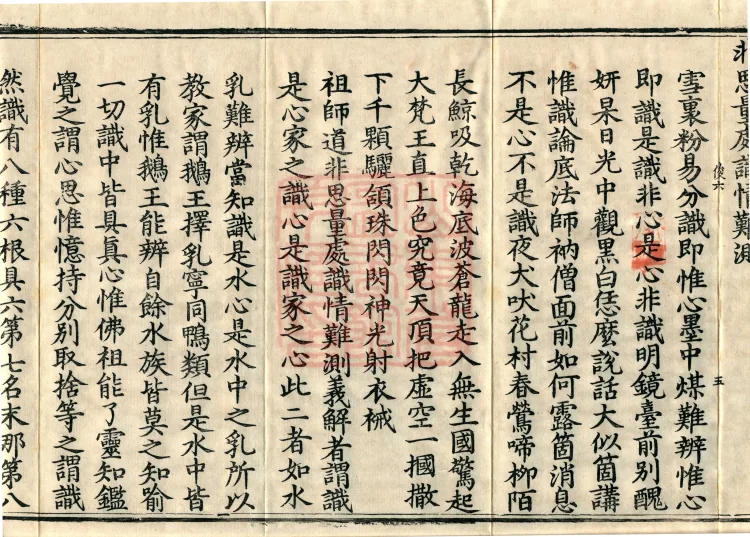 非思量處識情難測
雪裏粉易分識即惟心墨中煤難辨惟心
即識是識非心是心非識明鏡臺前别醜
妍杲日光中觀黒白恁麽說話大似箇講
惟識論底法師衲僧面前如何露箇消息
不是心不是識夜犬吠花村春鶯啼柳陌
俊六
五
長鯨吸乾海底波蒼龍走入無生國驚起
大梵王直上色究竟天頂把虚空一摑撒
下千顆驪頷珠閃閃神光射衣裓
祖師道非思量處識情難測義解者謂識
是心家之識心是識家之心此二者如水
乳難辨當知識是水心是水中之乳所以
教家謂鵝王擇乳寧同鴨類但是水中皆
有乳惟鵝王能辨自餘水族皆莫之知喻
一切識中皆具真心惟佛祖能了靈知鑑
覺之謂心思惟憶持分别取捨等之謂識
然識有八種六根具六第七名末那第八